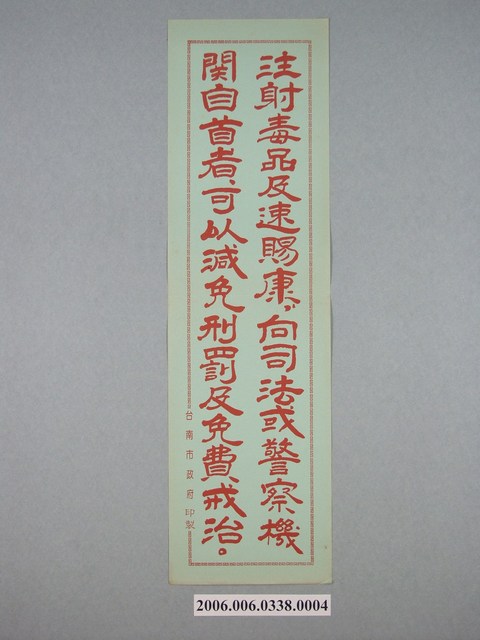 注射毒品及速賜康,向司法或警察機
関自首者、可以減免刑罰及免費戒治。
台南市政府印製
2006.006.0338.0004